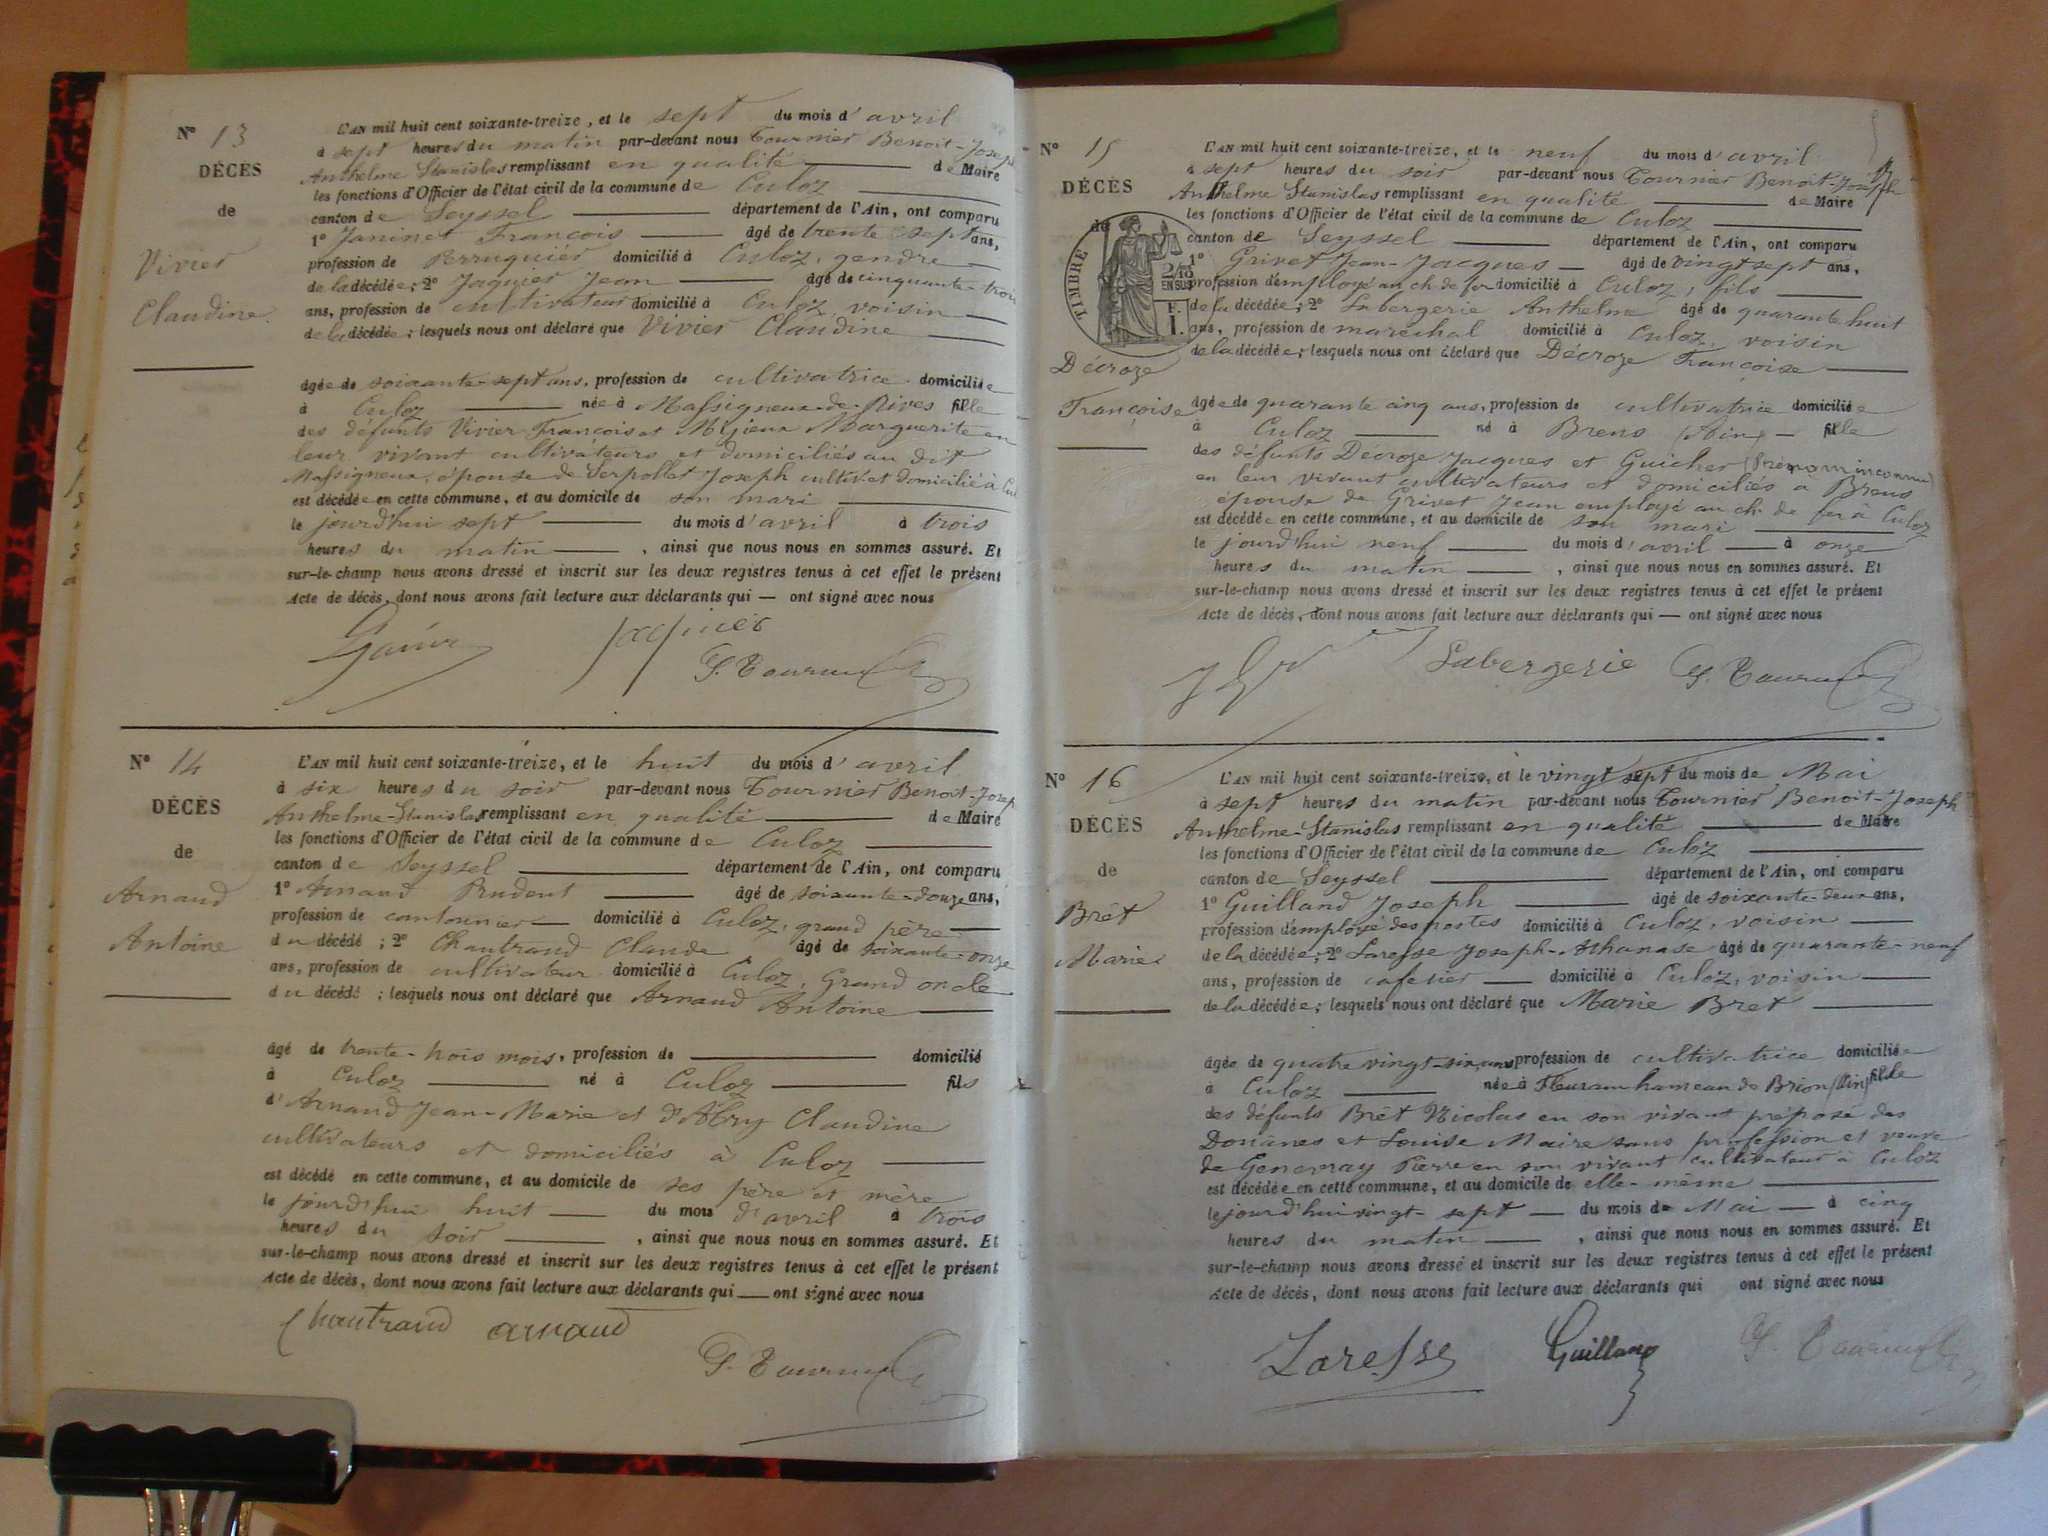 N° 13
DÉCÈS
de
Vivier
Claudine
L'AN mil huit cent soixante-treize, et le sept du mois d'avril
à sept heures du matin par-devant nous Tournier Benoit-Joseph
Anthelme Stanislas remplissant en qualité de Maire
les fonctions d'Officier de l'état civil de la commune de Culoz
canton de Seyssel département de l'Ain, ont comparu
1° Janinet François âgé de trente sept ans,
profession de Perruquier domicilié à Culoz, gendre
de la décédée; 2° Jaquier Jean âgé de cinquante-trois
ans, profession de cultivateur domicilié à Culoz, voisin
de la décédée; lesquels nous ont déclaré que Vivier Claudine
âgée de soixante-sept ans, profession de cultivatrice domiciliée
à Culoz née à Massigneux-de-Rives fille
des défunts Vivier François et Mijeux Marguerite en
leur vivant cultivateurs et domiciliés au dit
Massigneux, épouse de Verpollat Joseph cultiv. et domicilié à Cul
est décédée en cette commune, et au domicile de son mari
le jourd'hui sept du mois d'avril à trois
heures du matin, ainsi que nous nous en sommes assuré. Et
sur-le-champ nous avons dressé et inscrit sur les deux registres tenus à cet effet le présent
Acte de décès, dont nous avons fait lecture aux déclarants qui — ont signé avec nous
Jaquier
S. Tournier
N° 14
DÉCÈS
de
Arnaud
Antoine
L'AN mil huit cent soixante-treize, et le huit du mois d'avril
à six heures du soir par-devant nous Tournier Benoit-Josep
Anthelme-Stanislas remplissant en qualité de Maire
les fonctions d'Officier de l'état civil de la commune de Culoz
canton de Seyssel département de l'Ain, ont comparu
1° Arnaud Prudent âgé de soixante-douze ans,
profession de cantonnier domicilié à Culoz, grand père
du décédé; 2° Chantrand Claude âgé de soixante-onze
ans, profession de cultivateur domicilié à Culoz, Grand oncle
du décédé; lesquels nous ont déclaré que Arnaud Antoine
âgé de trente-trois mois, profession de domicilié
à Culoz né à Culoz fils
d'Arnaud Jean-Marie et d'Abry Claudine
cultivateurs et domiciliés à Culoz
est décédé en cette commune, et au domicile de ses père et mère
le jourd'hui huit du mois d'avril à trois
heures du soir, ainsi que nous nous en sommes assuré. Et
sur-le-champ nous avons dressé et inscrit sur les deux registres tenus à cet effet le présent
Acte de décès, dont nous avons fait lecture aux déclarants qui — ont signé avec nous
Chantrand arnaud
S. Tournier
N° 15
DÉCÈS
de
TIMBRE
2/10
EN SUS
F.
1.
Décroze
Françoise
L'AN mil huit cent soixante-treize, et le neuf du mois d'avril
à sept heures du soir par-devant nous Tournier Benoit-Joseph
Anthelme Stanislas remplissant en qualité de Maire
les fonctions d'Officier de l'état civil de la commune de Culoz
canton de Seyssel département de l'Ain, ont comparu
1° Grivet Jean-Jacques âgé de vingt sept ans,
profession d'employé au ch. de fer domicilié à Culoz, fils
de la décédée; 2° Labergerie Anthelme âgé de quarante huit
ans, profession de maréchal domicilié à Culoz, voisin
de la décédée; lesquels nous ont déclaré que Décroze Françoise
âgée de quarante cinq ans, profession de cultivatrice domiciliée
à Culoz né à Brens (Ain) fille
des défunts Décroze Jacques et Guicher (prénom inconnu)
en leur vivant cultivateurs et domiciliés à Brens
épouse de Grivet Jean employé au ch. de fer à Culoz
est décédée en cette commune, et au domicile de son mari
le jourd'hui neuf du mois d'avril à onze
heures du matin, ainsi que nous nous en sommes assuré. Et
sur-le-champ nous avons dressé et inscrit sur les deux registres tenus à cet effet le présent
Acte de décès, dont nous avons fait lecture aux déclarants qui — ont signé avec nous
Labergerie S. Tournier
N° 16
DÉCÈS
de
Brét
Marie
L'AN mil huit cent soixante-treize, et le vingt sept du mois de Mai
à sept heures du matin par-devant nous Tournier Benoit-Joseph
Anthelme-Stanislas remplissant en qualité de Maire
les fonctions d'Officier de l'état civil de la commune de Culoz
canton de Seyssel département de l'Ain, ont comparu
1° Guilland Joseph âgé de soixante-deux ans,
profession d'employé des postes domicilié à Culoz, voisin
de la décédée; 2° Laresse Joseph-Athanase âgé de quarante-neuf
ans, profession de cafetier domicilié à Culoz, voisin
de la décédée; lesquels nous ont déclaré que Marie Bret
âgée de quatre vingt-six ans profession de cultivatrice domiciliée
à Culoz née à hameau de Brion (Ain) fille
des défunts Brét Nicolas en son vivant préposé des
Douanes et Louise Maire sans profession et veuve
de Genevray Pierre en son vivant cultivateur à Culoz
est décédée en cette commune, et au domicile de elle-même
le jourd'hui vingt-sept du mois de Mai à cinq
heures du matin, ainsi que nous nous en sommes assuré. Et
sur-le-champ nous avons dressé et inscrit sur les deux registres tenus à cet effet le présent
Acte de décès, dont nous avons fait lecture aux déclarants qui ont signé avec nous
Laresse Guilland S. Tournier